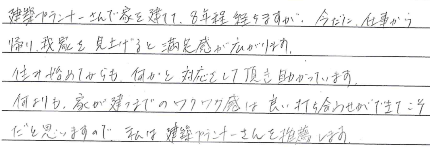 建築プランナーさんで家を建て、8年程経ちますが、今だに、仕事から
帰り、我家を見上げると満足感が広がります。
住み始めてからも、何かと対応をして頂き助かっています。
何よりも、家が建つまでのワクワク感は良い打ち合わせができてこそ
だと思いますので、私は建築プランナーさんを推薦します。